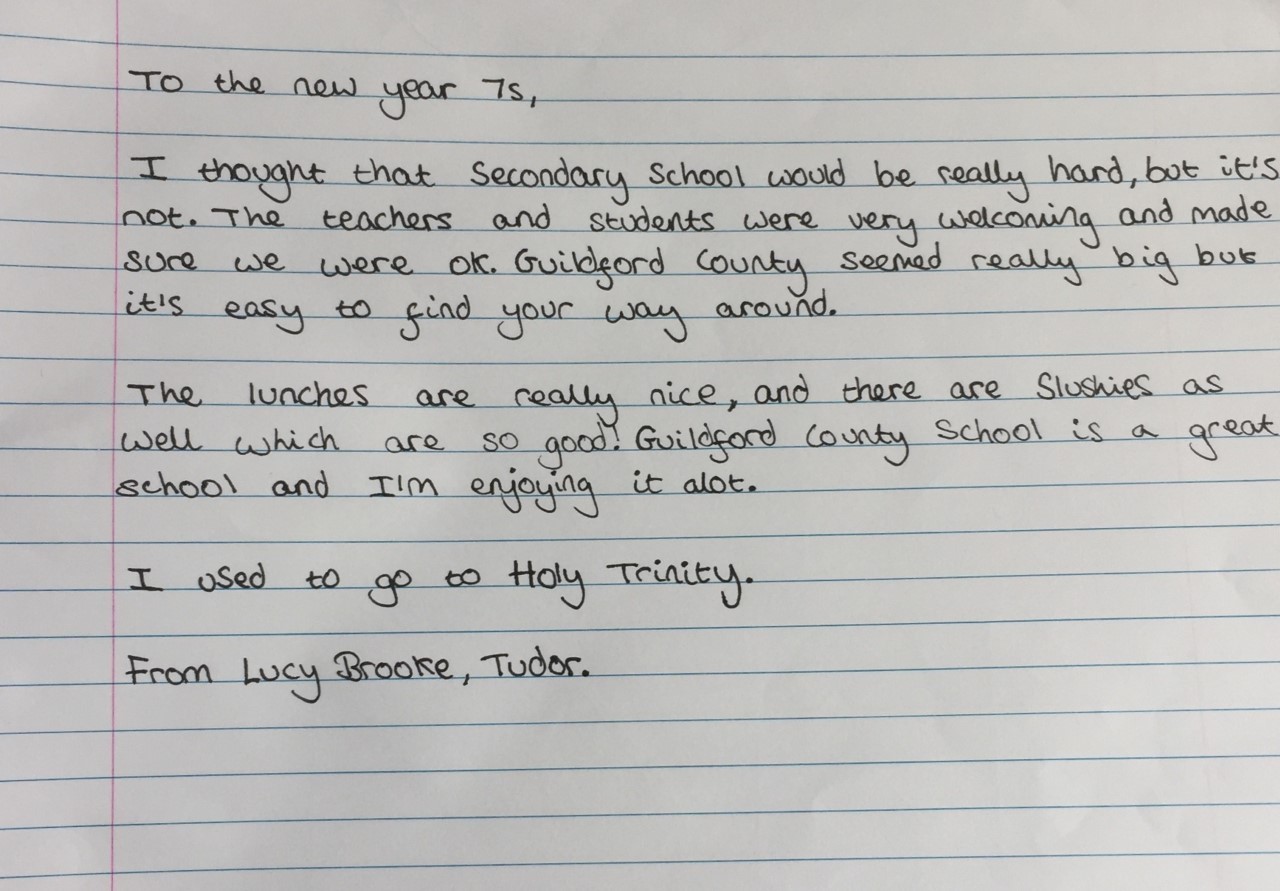 To the new year 7s,
I thought that Secondary School would be really hard, but it's
not. The teachers and students were very welcoming and made
sure we were ok. Guildford County seemed really big but
it's easy to find your way around.
The lunches are really nice, and there are Slushies as
well which are so good! Guildford County School is a great
school and I'm enjoying it alot.
I used to go to Holy Trinity.
From Lucy Brooke, Tudor.